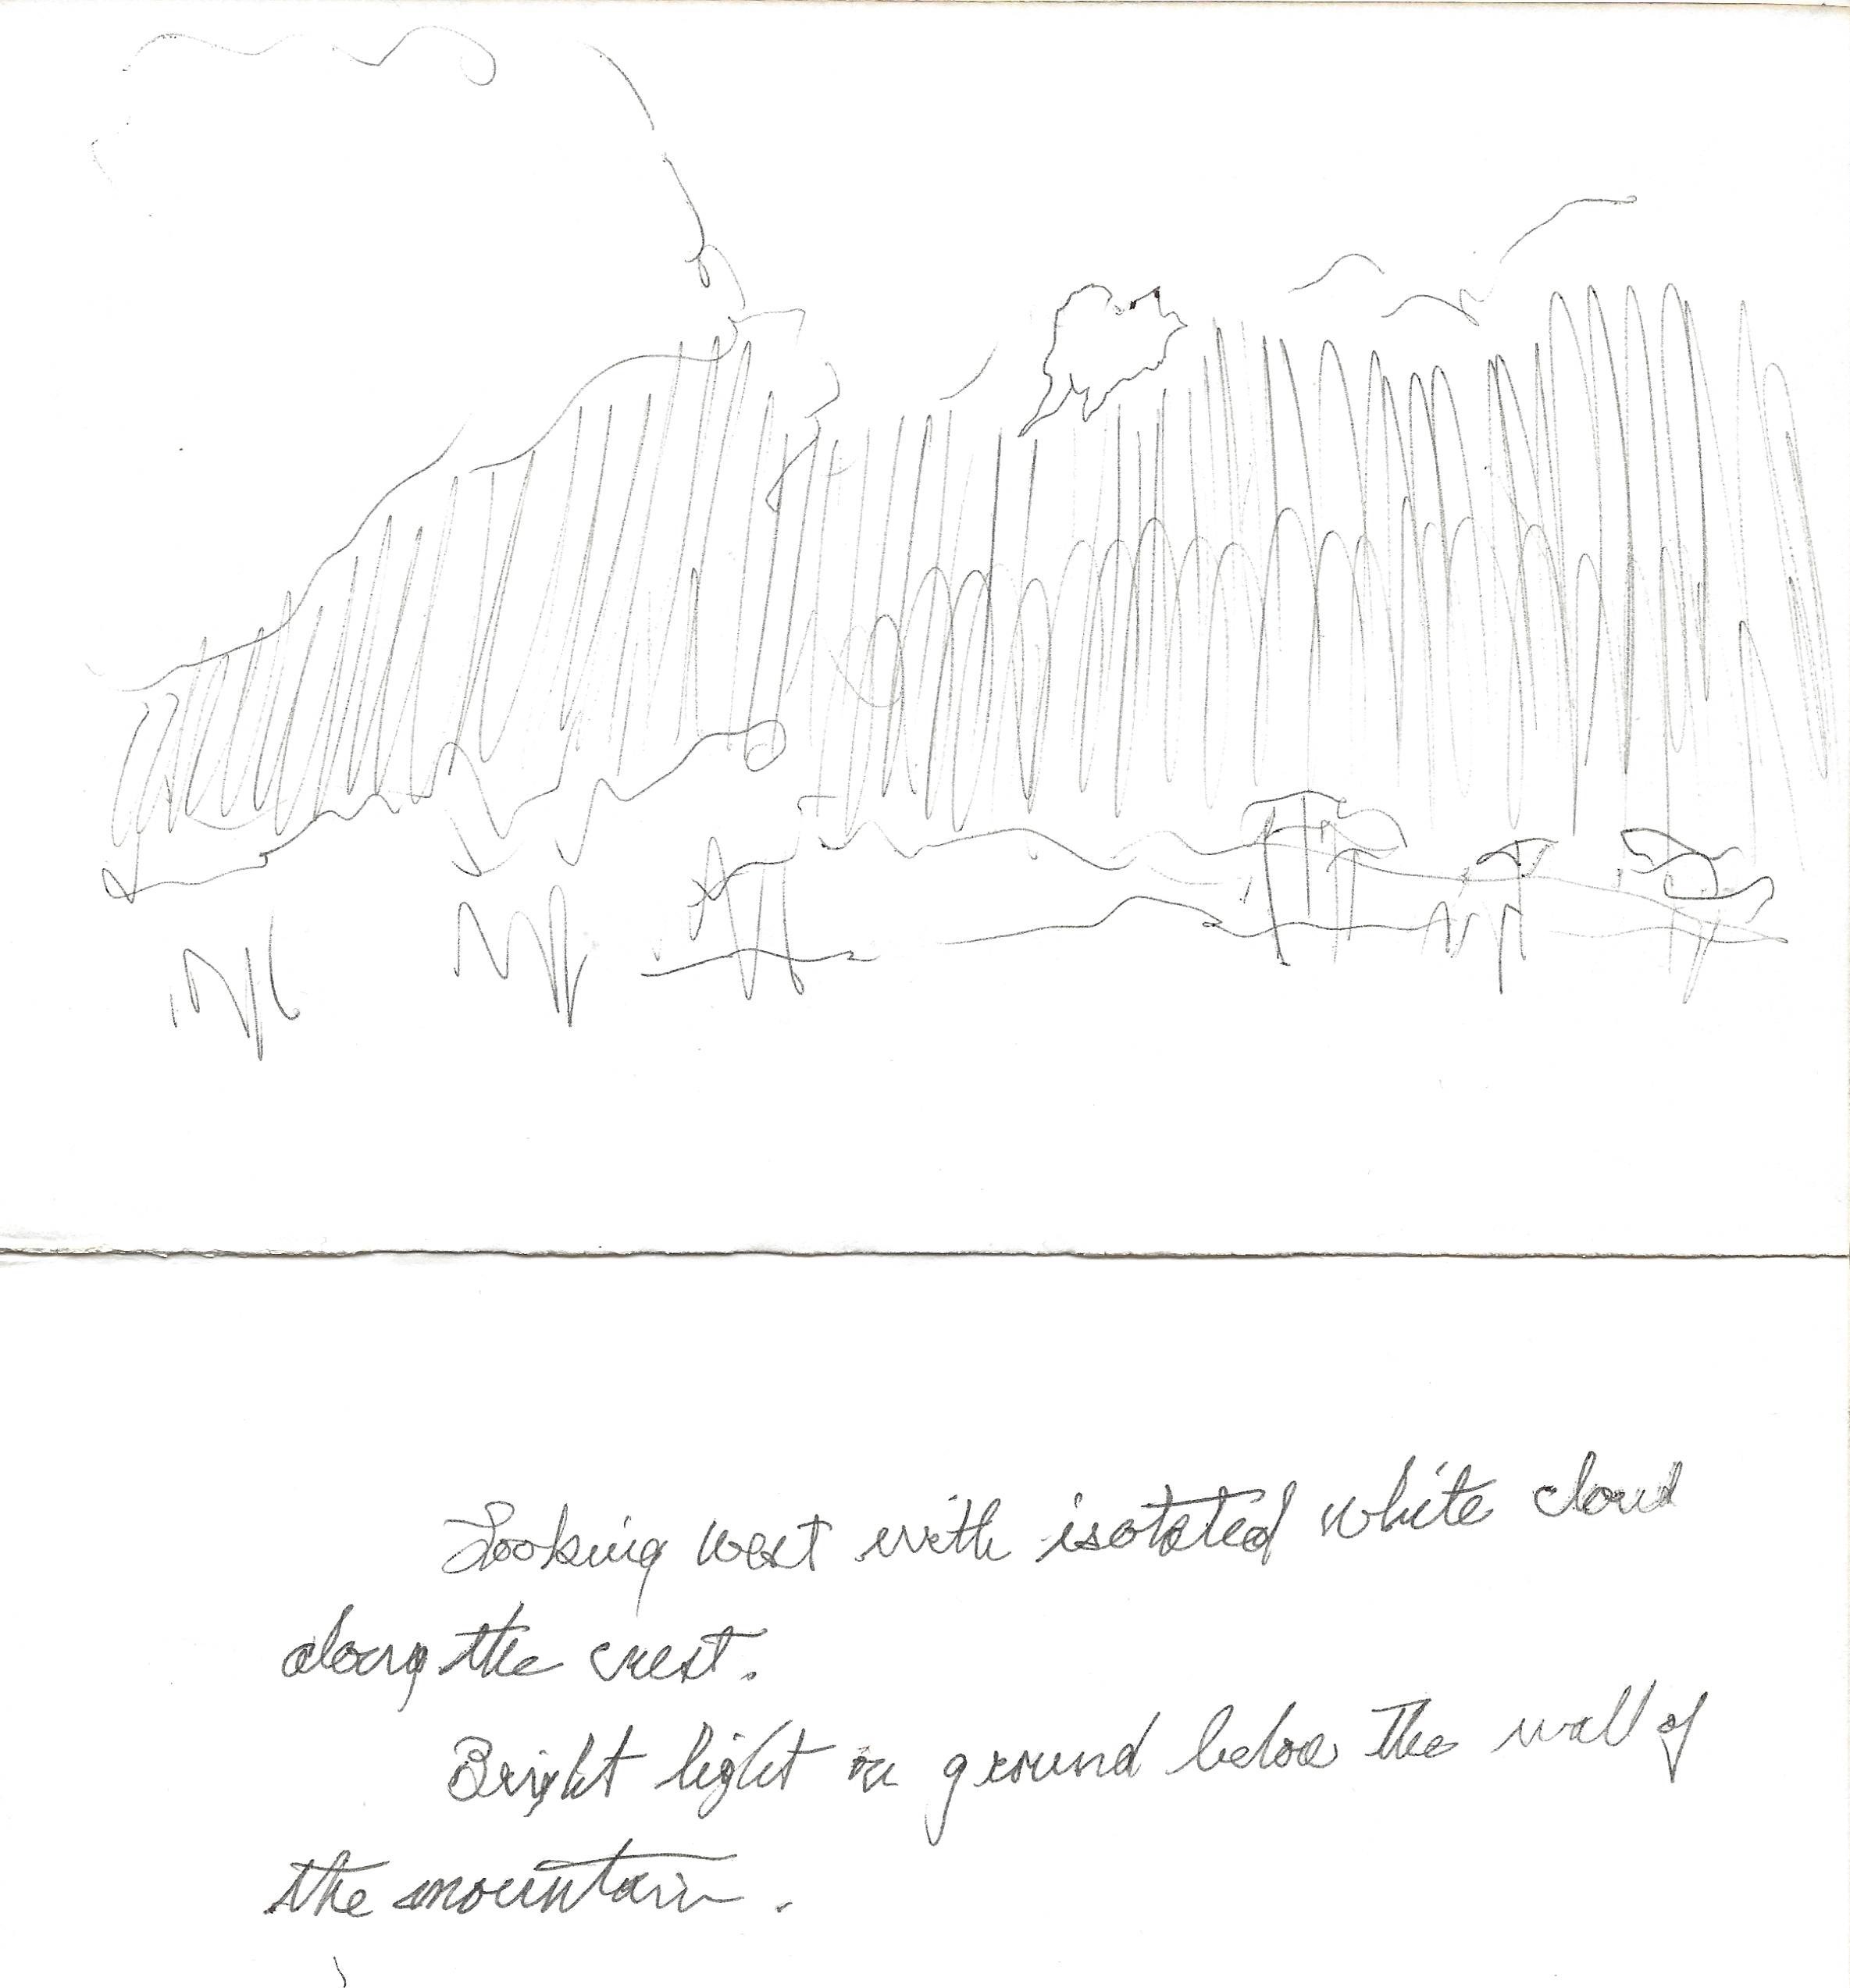 Looking west with isolated white cloud
along the crest.
Bright light on ground below the wall of
the mountain.